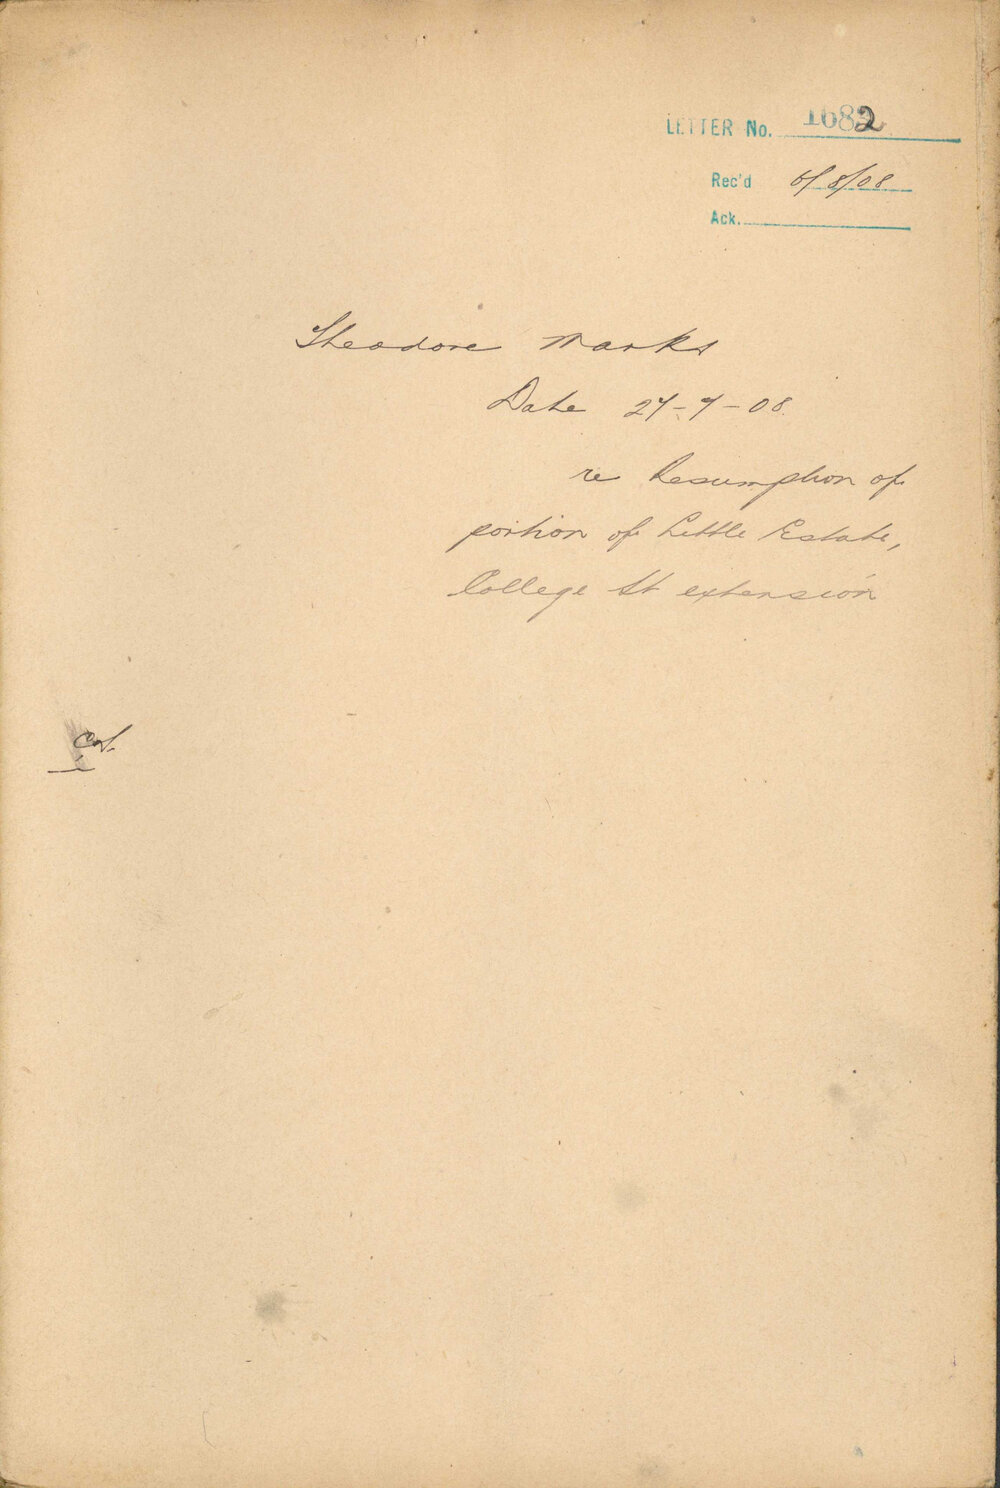 LETTER No. 1682
Rec'd 6/8/08
Ack.
Theodore Marks
Date 27-7-08
re Resumption of
portion of Little Estate,
College St extension